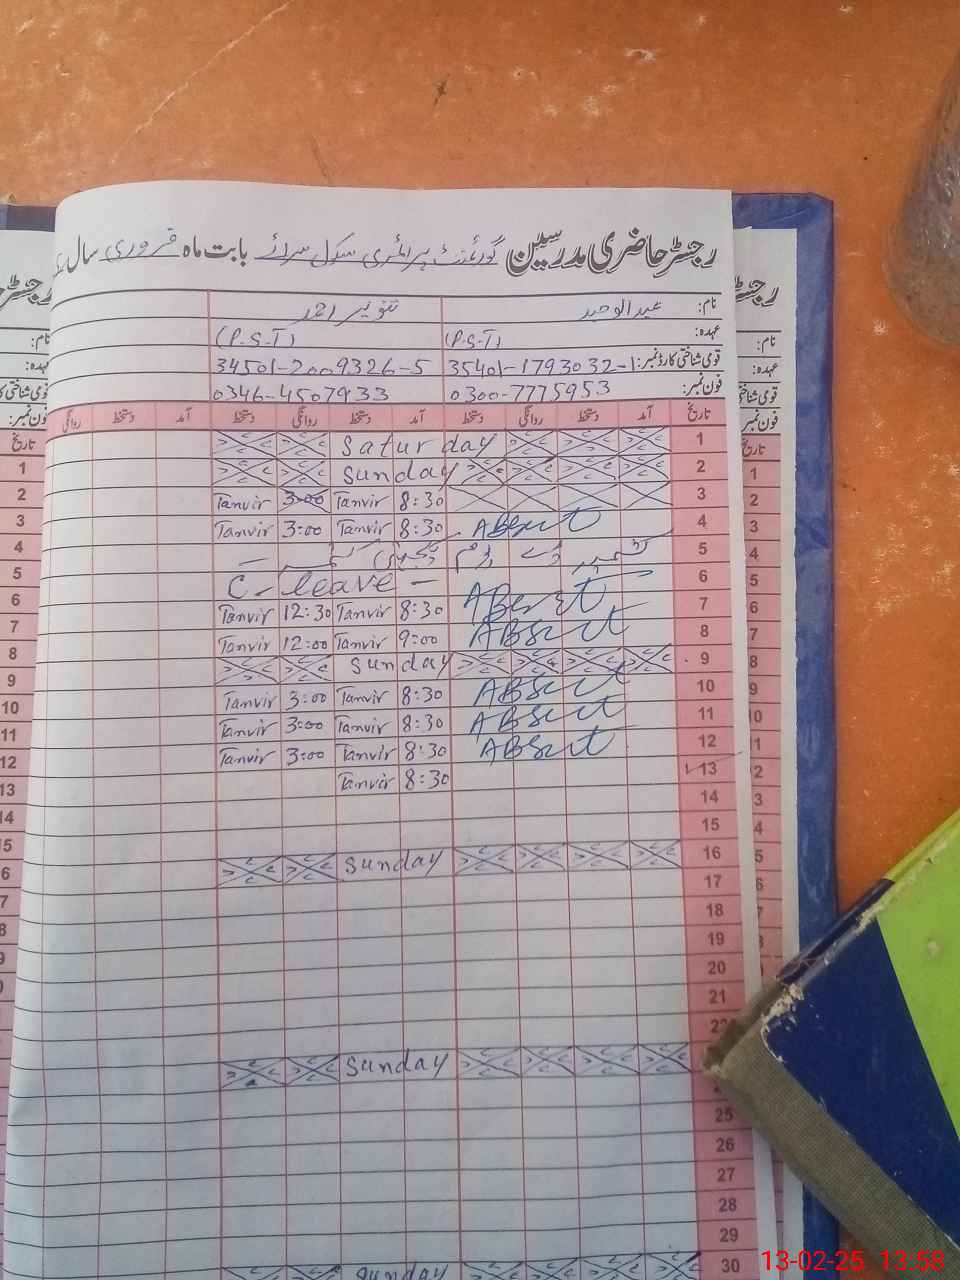 رجسٹر حاضری مدرسین گورنمنٹ پرائمری سکول سرائے بابت ماہ فروری سال
نام: عبدالوحید تنویر احمد
عہدہ: (P.S.T) (P.S.T)
قومی شناختی کارڈ نمبر: 35401-1793032-1 34501-2009326-5
فون نمبر: 0300-7775953 0346-4507933
تاریخ آمد دستخط روانگی دستخط آمد دستخط روانگی دستخط آمد دستخط روانگی
Saturday 1
Sunday 2
Tanvir 3:00 Tanvir 8:30 3
Tanvir 3:00 Tanvir 8:30 Absent 4
کشمیر ڈے 5
C-leave - 6
Tanvir 12:30 Tanvir 8:30 Absent 7
Tanvir 12:00 Tanvir 9:00 Absent 8
Sunday 9
Tanvir 3:00 Tanvir 8:30 Absent 10
Tanvir 3:00 Tanvir 8:30 Absent 11
Tanvir 3:00 Tanvir 8:30 Absent 12
Tanvir 8:30 13
14
15
Sunday 16
17
18
19
20
21
22
Sunday
25
26
27
28
29
Sunday 30
رجسٹر
نام:
عہدہ:
قومی شناختی
فون نمبر:
تاریخ
1
2
3
4
5
6
7
8
9
10
11
12
13
14
13-02-25 13:58